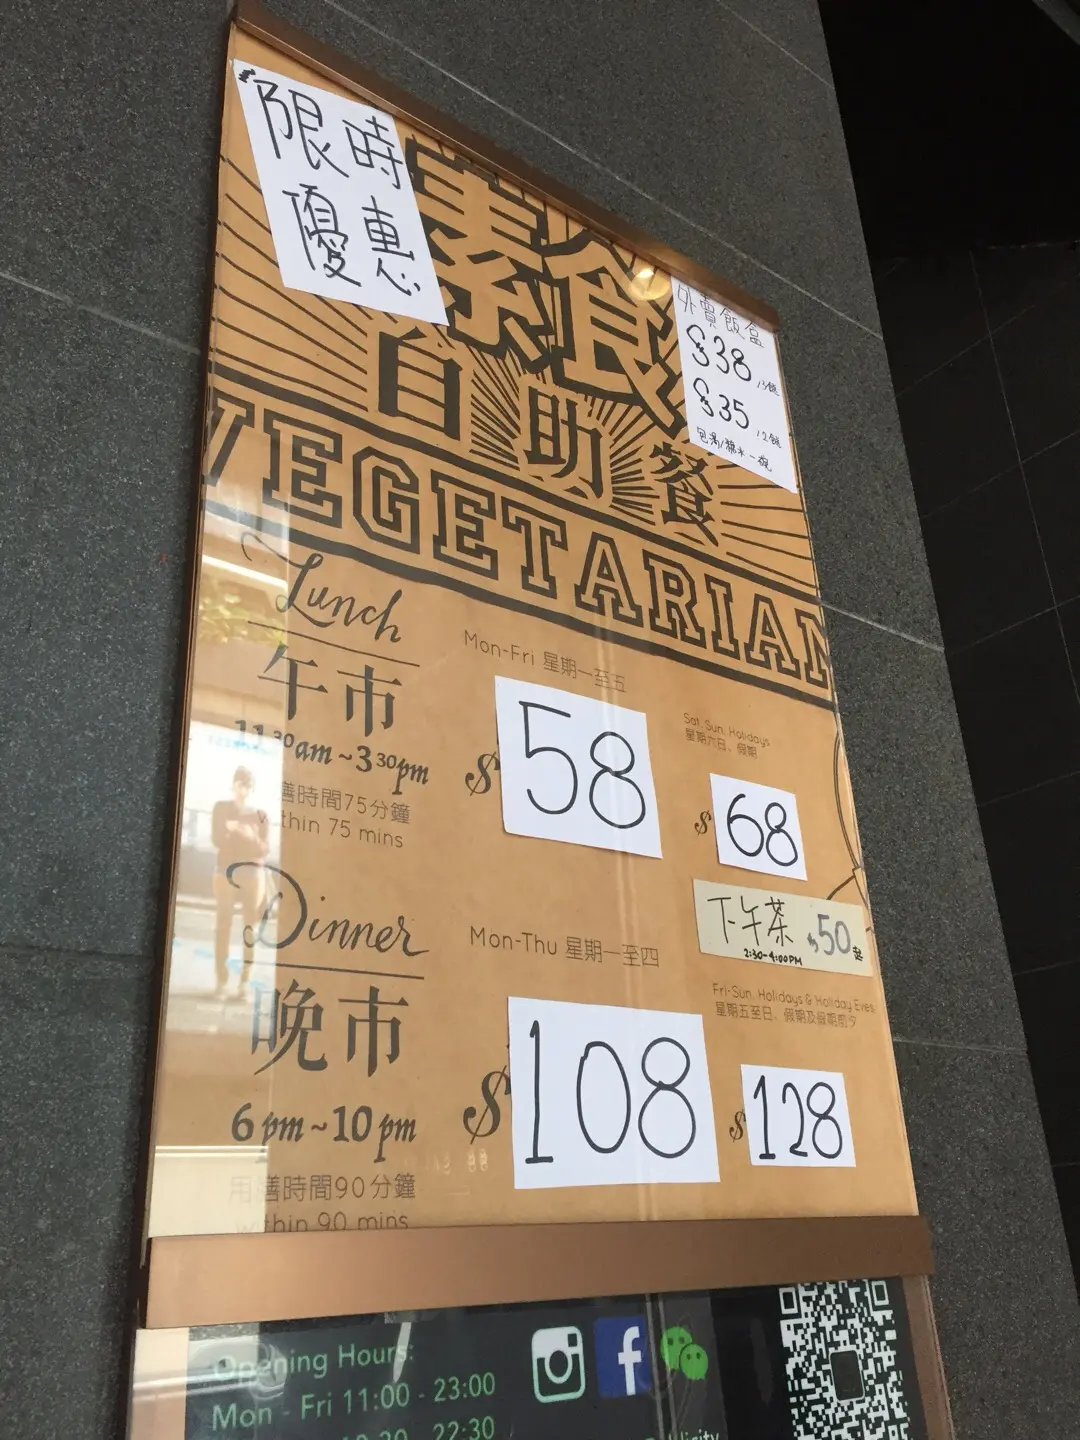 限時
優惠
素食
自助餐
VEGETARIAN
外賣飯盒
$38 /3餸
$35 /2餸
Lunch
午市
11 30am ~ 3 30pm
膳時間75分鐘
within 75 mins
Mon-Fri 星期一至五
$ 58
Sat. Sun. Holidays
星期六日、假期
$ 68
下午茶 $50起
2:30-4:00PM
Dinner
晚市
6pm ~ 10pm
用膳時間90分鐘
within 90 mins
Mon-Thu 星期一至四
$ 108
Fri-Sun. Holidays & Holiday Eves
星期五至日、假期及假期前夕
$ 128
Opening Hours:
Mon - Fri 11:00 - 23:00
22:30